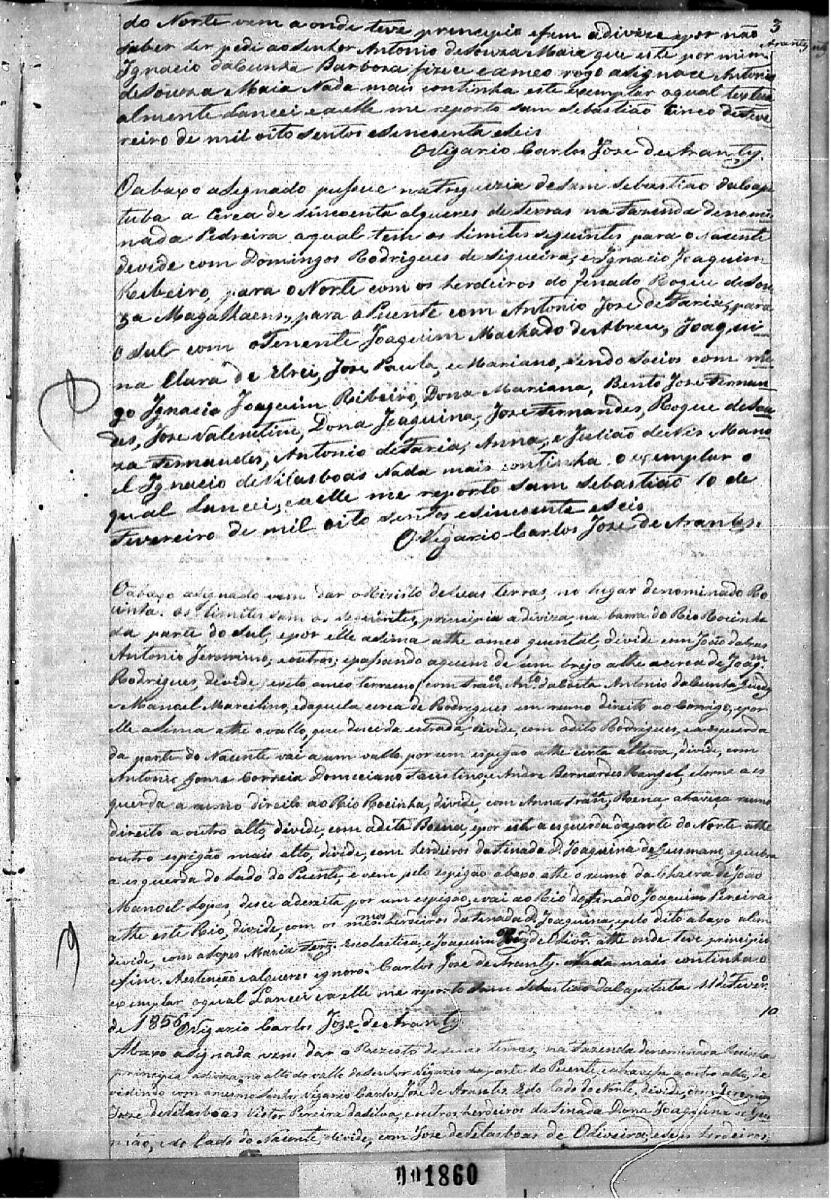 3
Arantz
do Norte vem a onde teve principio e fim a diviza e por não
saber ler pede ao senhor Antonio de Souza Maia que este por mim
Ignacio da Cunha Barboza fizece e a meo rogo asignace Antonio
de Souza Maia Nada mais continha este exemplar o qual textu
almente Lancei e a elle me reporto sam sebastião Cinco de Feve
reiro de mil oito sentos e sincoenta e seis
O Vigario Carlos Joze de Arantz.
O abaxo asignado pusue na Freguezia de sam sebastião da Capi
tuba a cerca de sincoenta alqueres de terras na Fazenda denomi
nada Pedreira a qual tem os limites seguintes para o Nacente
devide com Domingos Rodrigues de Siqueira, e Ignacio Joaquim
Ribeiro, para o Norte com os herdeiros do finado Roque de Sou
za Magalhaens, para o Puente com Antonio Joze de Faria, para
o sul com o Tenente Joaquim Machado de Abreu, Joaqui
na Clara de Elrei, Joze Paula, e Mariano, sendo socios com me
go Ignacio Joaquim Ribeiro, Dona Mariana, Bento Joze Fernan
des, Joze Valentim, Dona Joaquina, Joze Fernandes, Roque de Sou
za Fernandes, Antonio de Faria, Anna, e Julião de Nis Mano
el Ignacio de Vilasboas Nada mais continha o exemplar o
qual Lancei, e a elle me reporto sam sebastião 10 de
Fevereiro de mil oito sentos e sincoente e seis
O Vigario Carlos Joze de Arantz.
O abaxo asignado vem dar o Rezisto de suas terras, no lugar denominado Ro
cinha. os limites sam os seguentes, principia a diviza, na barra do Rio Rocinha
da parte do sul, e por elle asima athe o meo quental, divide com João
Antonio Jeronimo, e outros; e pasando aquem de um brejo athe a cerca de Joaqm
Rodrigues, divide, este meo terreno, com Franco Anto da Costa Antonio da Cunha
e Manoel Marcilino, e daquela cerca de Rodrigues em rumo direito ao Corrigo, e por
elle asima athe o vallo, que desce da estrada, divide, com o dito Rodrigues, e a esquerda
da parte do Nacente vai a um vallo, por um espigão athe certa altura, divide, com
Antonio Correia Domiciano Faustino, e Andre Bernardes Rangel, e torna a es
querda a rumo direito ao Rio Rocinha, divide, com Anna, Roena atraveza rumo
direito a outro alto, divide, com a dita Roena, e por este a esquerda da parte do Norte athe
outro espigão mais alto, divide, com herdeiros da finada D. Joaquina de Gusmam, e quebra
a esquerda do Lado do Puente, e vem pelo espigão abaxo athe o rumo da chacra de João
Manoel Lopes desce a dereita por um espigão, e vai ao Rio do finado Joaquim Pereira
athe este Rio, divide, com os mesmos herdeiros da finada D. Joaquina, e pelo dito abaxo
divide, com Lopes Maria Escolastica, e Joaquim athe onde teve principio
e fim. A estenção e alqueres ignoro Carlos Joze de Arantz. Nada mais continha o
exemplar o qual Lancei e a elle me reporto Sam sebastião da Capituba 11 de Fevro
de 1856 O Vigario Carlos Joze de Arantz
10
Abaxo asignada vem dar o Rezesto de suas terras, na Fazenda denominada Rocinha
principia a diviza, no alto do vallo do senhor Vigario da parte do Puente, e atraveza a outro alto, de
vedindo com o mesmo senhor Vigario Carlos Joze de Arantes. E do lado do Norte, divide, com Jeronimo
Joze de Vilasboas Victor Pereira da silva, e outros herdeiros da finada Dona Joaquina de Gus
mão, e do lado do Nacente, divide, com Joze de Vilasboas de Oliveira, e seus herdeiros,
001860